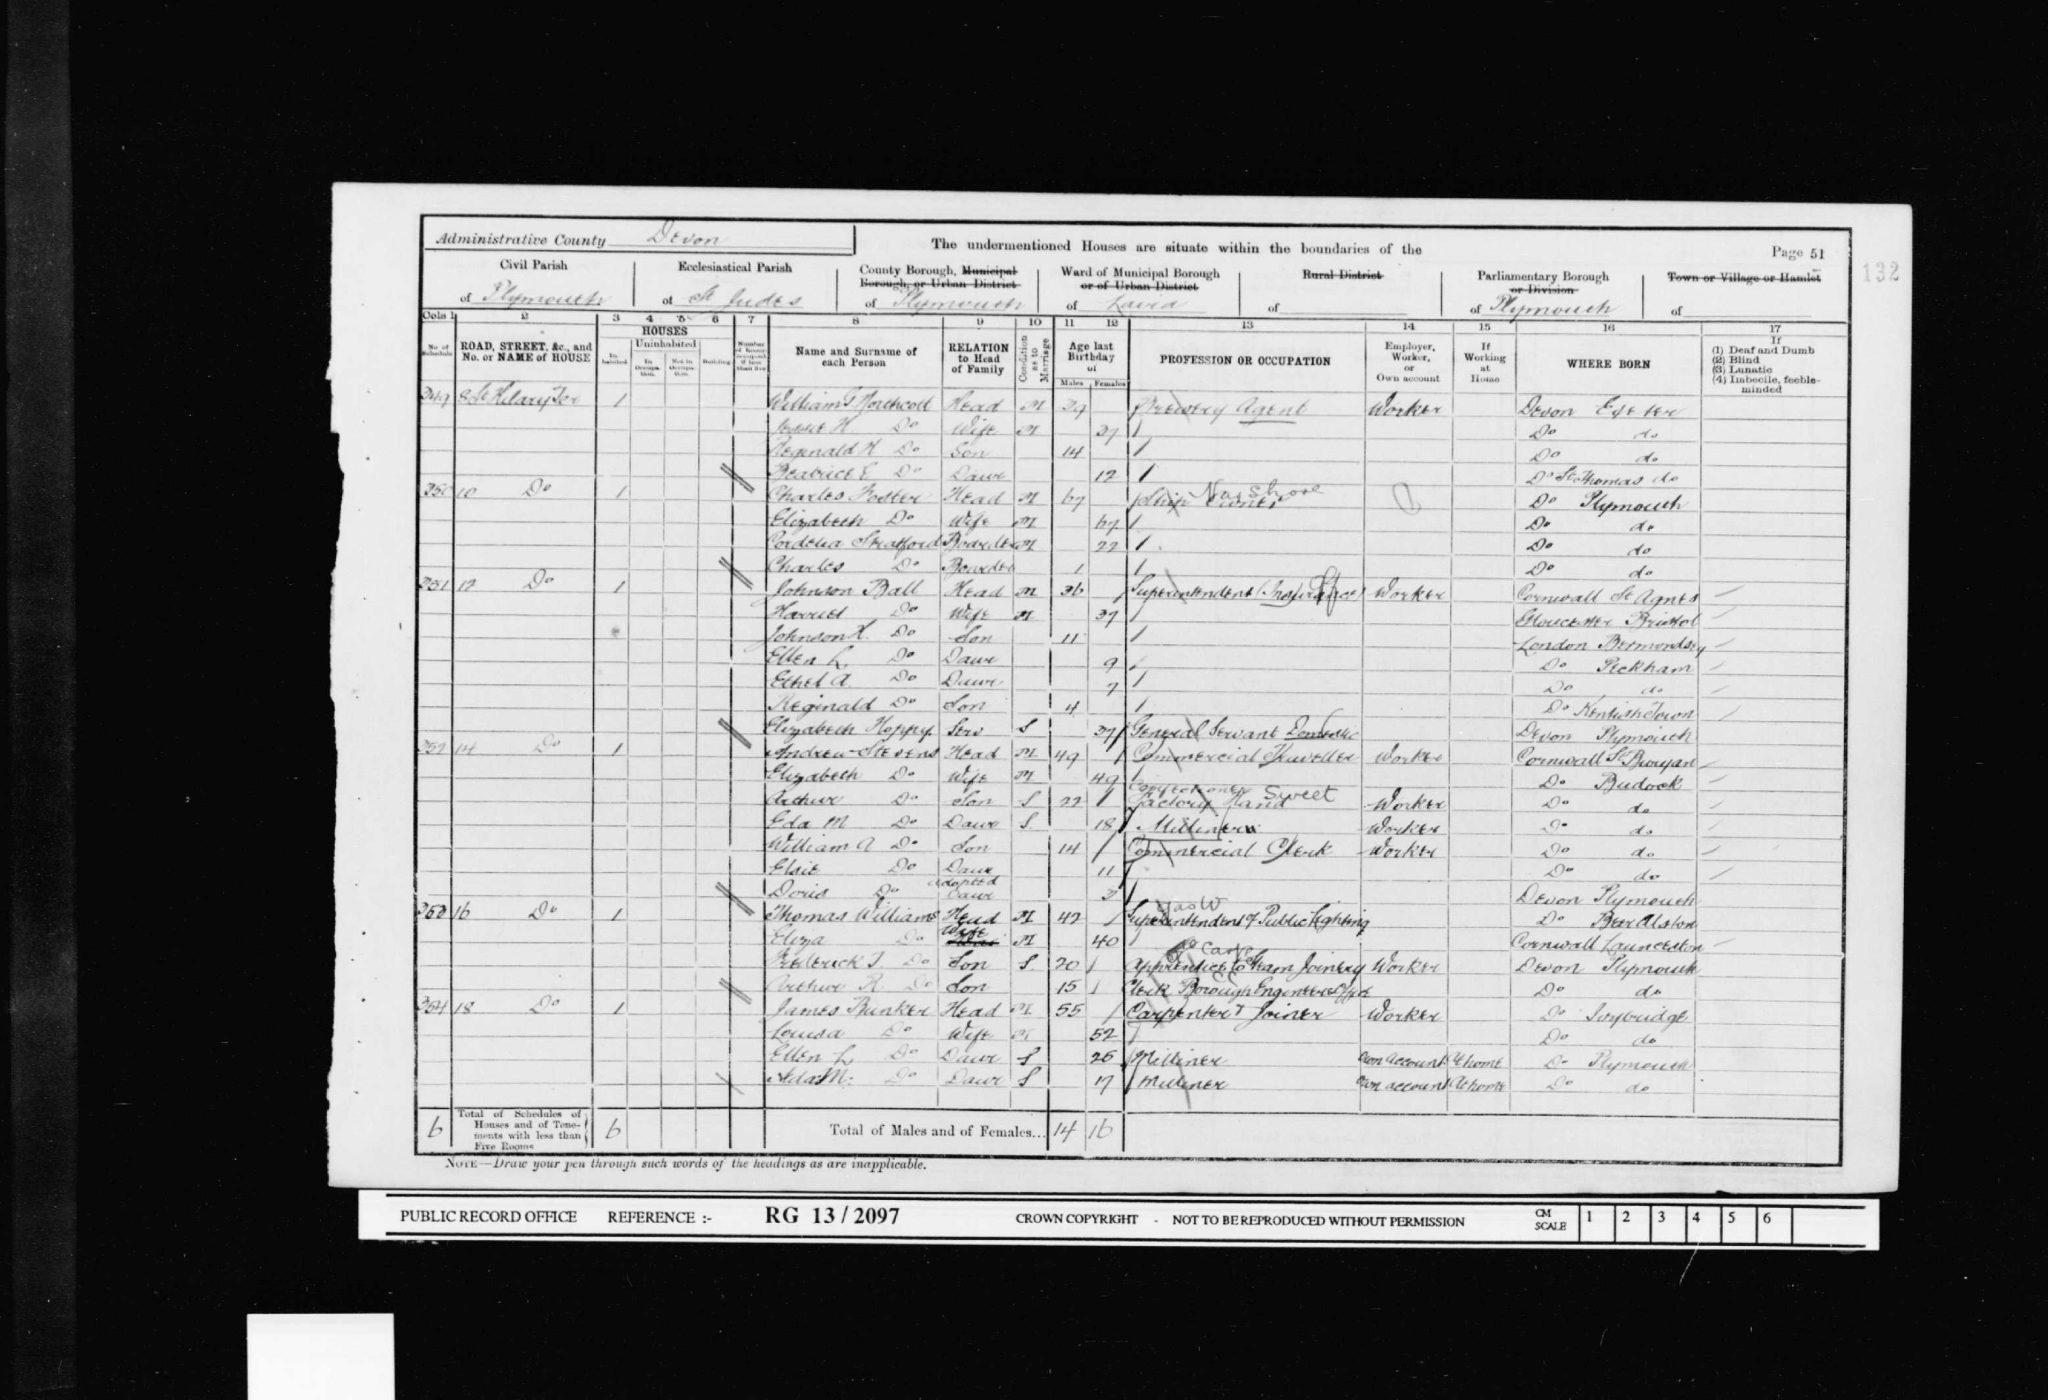 Administrative County Devon
The undermentioned Houses are situate within the boundaries of the
Page 51
132
Civil Parish
of Plymouth
Ecclesiastical Parish
of St Judes
County Borough, Municipal
Borough, or Urban District
of Plymouth
Ward of Municipal Borough
or of Urban District
of Laira
Rural District
of
Parliamentary Borough
or Division
of Plymouth
Town or Village or Hamlet
of
Cols 1 2 3 4 5 6 7 8 9 10 11 12 13 14 15 16 17
No. of Schedule
ROAD, STREET, &c., and
No. or NAME of HOUSE
HOUSES
In-habited
Uninhabited
In Occupa-tion.
Not in Occupa-tion.
Building
Name and Surname of
each Person
RELATION
to Head
of Family
Condition as to Marriage
Age last
Birthday
of
Males Females
PROFESSION OR OCCUPATION
Employer,
Worker,
or
Own account
If
Working
at
Home
WHERE BORN
If
(1) Deaf and Dumb
(2) Blind
(3) Lunatic
(4) Imbecile, feeble-
minded
349 8 St Hilary Ter 1 William Northcott Head M 39 Brewery Agent Worker Devon Exeter
Jessie H. Do Wife M 37 Do do
Reginald H Do Son 14 Do do
Beatrice E Do Daur 12 Do St Thomas do
350 10 Do 1 Charles Foster Head M 67 Ship Owner Do Plymouth
Elizabeth Do Wife M 67 Do do
Cordelia Stratford Boarder M 22 Do do
Charles Do Boarder 1 Do do
351 12 Do 1 Johnson Ball Head M 36 Superintendent (Insurance) Worker Cornwall St Agnes
Harriet Do Wife M 37 Gloucester Bristol
Johnson H. Do Son 11 London Bermondsey
Ellen L Do Daur 9 Do Peckham
Ethel A. Do Daur 7 Do do
Reginald Do Son 4 Do Kentish Town
Elizabeth Hoppy. Serv S 37 General Servant Domestic Devon Plymouth
352 14 Do 1 Andrew Stevens Head M 49 Commercial Traveller Worker Cornwall St
Elizabeth Do Wife M 49 Do Budock
Confectionery Sweet
Arthur Do Son S 22 Factory Hand Worker Do do
Eda M Do Daur S 18 Milliner Worker Do do
William A Do Son 14 Commercial Clerk Worker Do do
Elsie Do Daur 11 Do do
Doris Do adopted Daur 3 Devon Plymouth
353 16 Do 1 Thomas Williams Head M 42 Superintendent of Public Lighting Do Beer Alston
Eliza Do Wife M 40 Cornwall Launceston
Frederick J. Do Son S 20 Apprentice to Steam Joinery Worker Devon Plymouth
Arthur R. Do Son 15 Clerk Borough Engineers Office Do do
354 18 Do 1 James Bunker Head M 55 Carpenter & Joiner Worker Do Ivybridge
Louisa Do Wife M 52 Do do
Ellen L Do Daur S 25 Milliner Own account At home Do Plymouth
Ada M: Do Daur S 17 Milliner Own account At home Do do
6
Total of Schedules of
Houses and of Tene-
ments with less than
Five Rooms
6
Total of Males and of Females... 14 16
NOTE—Draw your pen through such words of the headings as are inapplicable.
PUBLIC RECORD OFFICE REFERENCE :- RG 13 / 2097 CROWN COPYRIGHT - NOT TO BE REPRODUCED WITHOUT PERMISSION CM SCALE 1 2 3 4 5 6